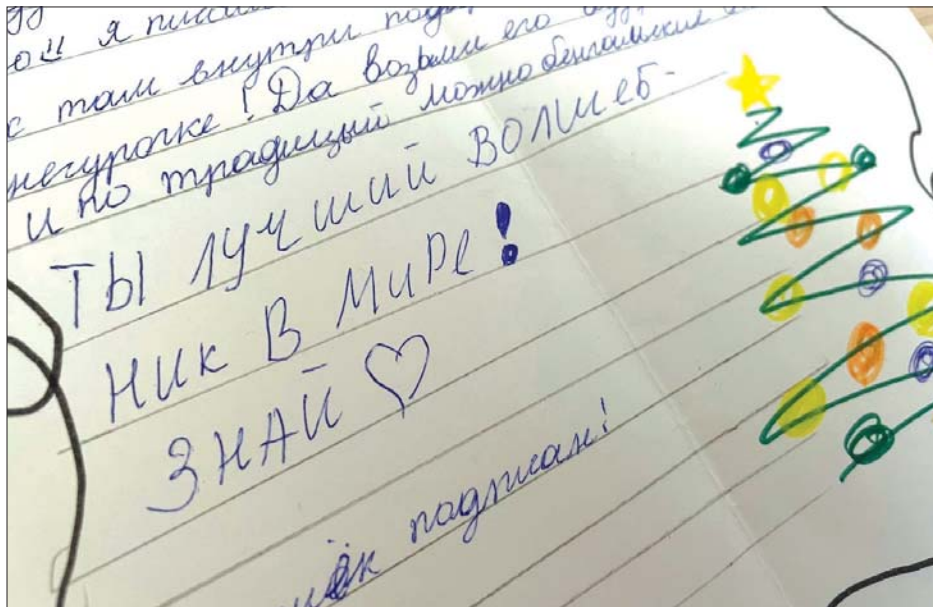 я
с там внутри
негурочке! Да возьми его
и по традицый можно бенгальские
ТЫ ЛУЧШИЙ ВОЛШЕБ-
НИК В МИРе!
ЗНАЙ ♡
подписан!